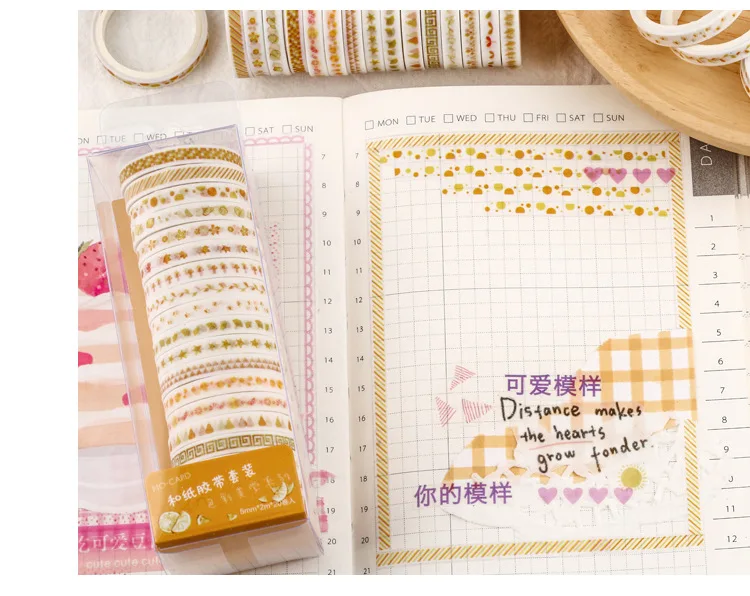 MON TUE WED THU FRI SAT SUN
TUE WED
SAT SUN
7
8
9
10
11
12
13
14
15
16
17
18
19
20
21
7
8
9
10
11
12
13
14
15
16
17
18
20
21
DA
1
2
3
4
5
6
7
8
9
10
11
12
可爱模样
Distance makes
the hearts
grow fonder.
你的模样
和纸胶带套装
5mm*2m*20卷入
可爱
cute cute cut